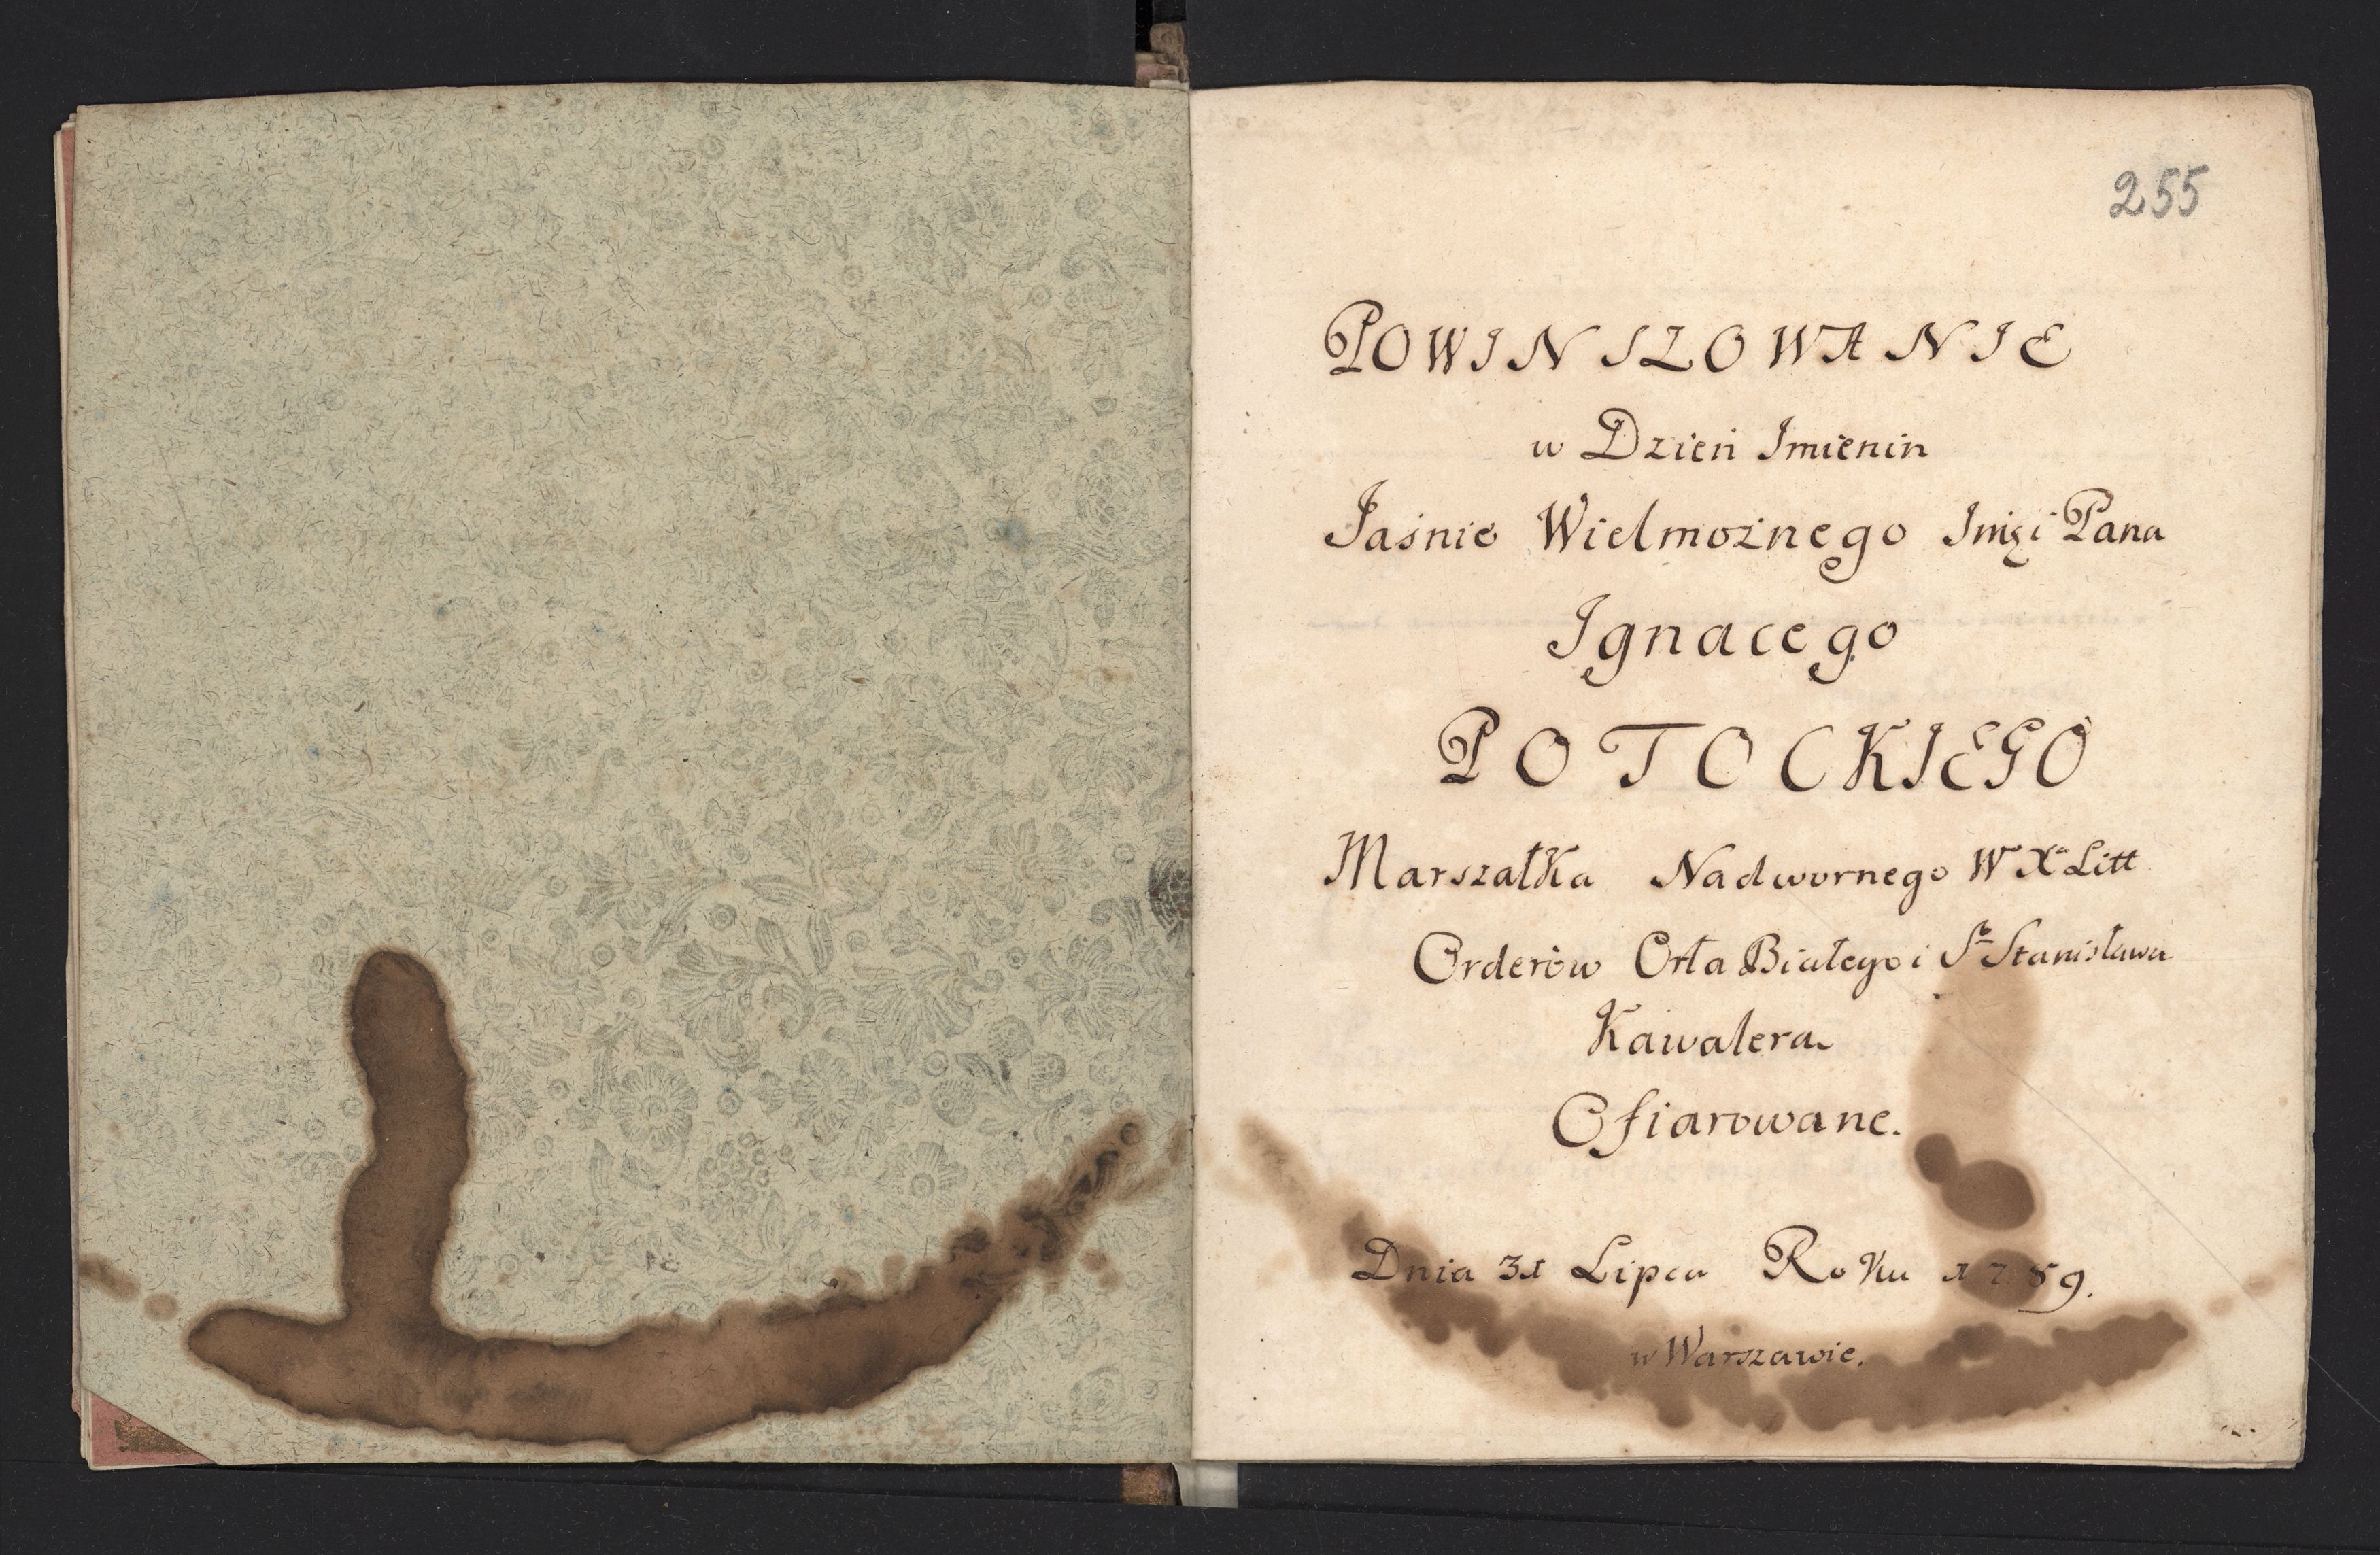 255
POWINSZOWANIE
w Dzień Jmienin
Jaśnie Wielmożnego Jmci Pana
Ignacego
POTOCKIEGO
Marszałka Nadwornego W° X° Litt
Orderów Orła Białego i S° Stanisława
Kawalera
Ofiarowane.
Dnia 31 Lipca Roku 1789.
w Warszawie.